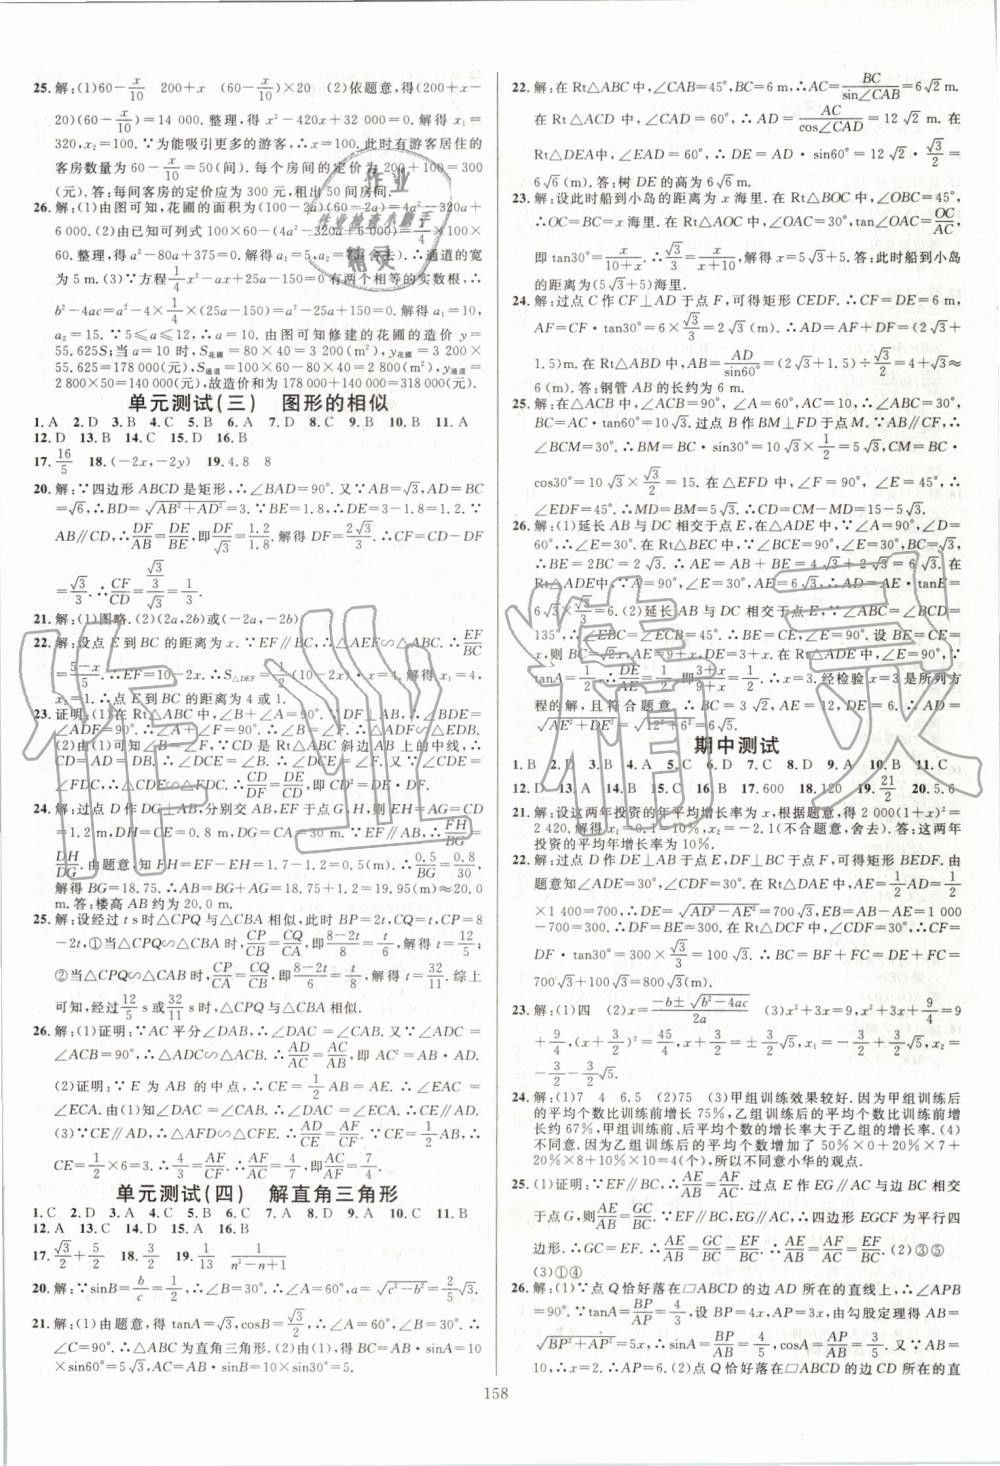 25. 解:(1)60-x/10　200+x　(60-x/10)×20　(2)依题意,得(200+x-
20)(60-x/10)=14 000. 整理,得 x²-420x+32 000=0. 解得 x₁=
320,x₂=100. ∵为能吸引更多的游客,∴x=100. 此时有游客居住的
客房数量为 60-x/10=50(间). 每个房间的定价为 200+100=300
(元). 答:每间客房的定价应为 300 元,租出 50 间房间.
26. 解:(1)由图可知,花圃的面积为(100-2a)(60-2a)=4a²-320a+
6 000. (2)由已知可列式 100×60-(4a²-320a+6 000)=1/4×100×
60. 整理,得 a²-80a+375=0. 解得 a₁=5,a₂=75(舍去). ∴通道的
宽为 5 m. (3)∵方程 1/4x²-ax+25a-150=0 有两个相等的实数根,∴
b²-4ac=a²-4×1/4×(25a-150)=a²-25a+150=0. 解得 a₁=10,
a₂=15. ∵5≤a≤12. ∴a=10. 由图可知修建的花圃的造价 y=
55.625S;当 a=10 时,S花圃=80×40=3 200(m²),y花圃=3 200×
55.625=178 000(元),S通道=60×100-80×40=2 800(m²),y通道=
2 800×50=140 000(元),故造价和为 178 000+140 000=318 000(元).
单元测试(三)　图形的相似
1. A　2. D　3. B　4. C　5. B　6. A　7. D　8. C　9. B　10. B　11. A
12. D　13. B　14. C　15. D　16. B
17. 16/5　18. (-2x,-2y)　19. 4.8　8
20. 解:∵四边形 ABCD 是矩形,∴∠BAD=90°. 又∵AB=√3,AD=BC
=√6,∴BD=√(AB²+AD²)=3. ∵BE=1.8,∴DE=3-1.8=1.2. ∵
AB∥CD,∴DF/AB=DE/BE,即DF/√3=1.2/1.8. 解得 DF=2√3/3. ∴CF=CD-DF
=√3/3. ∴CF/CD=(√3/3)/√3=1/3.
21. 解:(1)图略. (2)(2a,2b)或(-2a,-2b)
22. 解:设点 E 到 BC 的距离为 x. ∵EF∥BC,∴△AEF∽△ABC. ∴EF/BC
=(5-x)/5. ∴EF=10-2x. ∵S△DEF=1/2(10-2x)·x=4,解得 x₁=4,
x₂=1. ∴点 E 到 BC 的距离为 4 或 1.
23. 证明:(1)在 Rt△ABC 中,∠B+∠A=90°. ∵DF⊥AB,∴∠BDE=
∠ADF=90°. ∴∠A+∠F=90°. ∴∠B=∠F. ∴△ADF∽△EDB.
(2)由(1)可知∠B=∠F,∵CD 是 Rt△ABC 斜边 AB 上的中线,∴CD=
24. 解:过点 D 作 DG⊥AB,分别交 AB,EF 于点 G,H,则 EH=AG=CD
=1.2 m,DH=CE=0.8 m,DG=CA=30 m. ∵EF∥AB,∴FH/BG=
DH/DG. 由题意,知 FH=EF-EH=1.7-1.2=0.5(m). ∴0.5/BG=0.8/30.
解得 BG=18.75. ∴AB=BG+AG=18.75+1.2=19.95(m)≈20.0
m. 答:楼高 AB 约为 20.0 m.
25. 解:设经过 t s 时△CPQ 与△CBA 相似,此时 BP=2t,CQ=t,CP=8
-2t,①当△CPQ∽△CBA 时,CP/CB=CQ/CA,即(8-2t)/8=t/6,解得 t=12/5;
②当△CPQ∽△CAB 时,CP/CA=CQ/CB,即(8-2t)/6=t/8,解得 t=32/11. 综上
可知,经过 12/5 s 或 32/11 s 时,△CPQ 与△CBA 相似.
26. 解:(1)证明:∵AC 平分∠DAB,∴∠DAC=∠CAB. 又∵∠ADC=
∠ACB=90°,∴△ADC∽△ACB. ∴AD/AC=AC/AB,即 AC²=AB·AD.
(2)证明:∵E 为 AB 的中点,∴CE=1/2AB=AE. ∴∠EAC=
∠ECA. 由(1)知∠DAC=∠CAB,∴∠DAC=∠ECA. ∴CE∥AD.
(3)∵CE∥AD,∴△AFD∽△CFE. ∴AD/CE=AF/CF. ∵CE=1/2AB,∴
CE=1/2×6=3. ∴4/3=AF/CF. ∴AC/AF=7/4.
单元测试(四)　解直角三角形
1. C　2. D　3. A　4. D　5. B　6. C　7. B　8. A　9. D　10. C　11. B
12. A　13. C　14. D　15. A　16. B
17. √3/2+5/2　18. 3/2　19. 1/13　1/(n²-n+1)
20. 解:∵sinB=b/c=1/2,∴∠B=30°. ∴∠A=60°,a=√(c²-b²)=2/5√3.
21. 解:(1)由题意,得 tanA=√3,cosB=√3/2,∴∠A=60°,∠B=30°. ∴
∠C=90°. ∴△ABC 为直角三角形. (2)由(1),得 BC=AB·sinA=10
×sin60°=5√3,AC=AB·sinB=10×sin30°=5.
22. 解:在 Rt△ABC 中,∠CAB=45°,BC=6 m,∴AC=BC/sin∠CAB=6√2
m. 在 Rt△ACD 中,∠CAD=60°,∴AD=AC/cos∠CAD=12√2 m. 在
Rt△DEA 中,∠EAD=60°,∴DE=AD·sin60°=12√2·√3/2=
6√6(m). 答:树 DE 的高为 6√6 m.
23. 解:设此时船到小岛的距离为 x 海里. 在 Rt△BOC 中,∠OBC=45°,
∴OC=BC=x 海里. 在 Rt△AOC 中,∠OAC=30°,tan∠OAC=OC/AC,
即 tan30°=x/(10+x). ∴√3/3=x/(x+10),解得 x=5√3+5. 答:此时船到小岛
的距离为(5√3+5)海里.
24. 解:过点 C 作 CF⊥AD 于点 F,可得矩形 CEDF. ∴CF=DE=6 m,
AF=CF·tan30°=6×√3/3=2√3(m). ∴AD=AF+DF=(2√3+
1.5)m. 在 Rt△ABD 中,AB=AD/sin60°=(2√3+1.5)÷√3/2=4+√3≈
6(m). 答:钢管 AB 的长约为 6 m.
25. 解:在△ACB 中,∠ACB=90°,∠A=60°,AC=10,∴∠ABC=30°,
BC=AC·tan60°=10√3. 过点 B 作 BM⊥FD 于点 M. ∵AB∥CF,∴
∠BCM=30°. ∴BM=BC·sin30°=10√3×1/2=5√3,CM=BC·
cos30°=10√3×√3/2=15. 在△EFD 中,∠F=90°,∠E=45°,∴
∠EDF=45°. ∴MD=BM=5√3. ∴CD=CM-MD=15-5√3.
26. 解:(1)延长 AB 与 DC 相交于点 E,在△ADE 中,∵∠A=90°,∠D=
60°,∴∠E=30°. 在 Rt△BEC 中,∵∠BCE=90°,∠E=30°,BC=2√3,
∴BE=2BC=4√3. ∴AE=AB+BE=4√3+2√3=6√3. 在
Rt△ADE 中,∵∠A=90°,∠E=30°,AE=6√3,∴AD=AE·tanE=
6√3×√3/3=6. (2)延长 AB 与 DC 相交于点 E,∵∠ABC=∠BCD=
135°,∴∠EBC=∠ECB=45°. ∴BE=CE,∠E=90°. 设 BE=CE=
x,则 BC=√2x,AE=9+x,DE=3+x. 在 Rt△ADE 中,∠E=90°,∵
tanA=1/2,∴DE/AE=1/2,即(3+x)/(9+x)=1/2. ∴x=3. 经检验 x=3 是所列方
程的解,且符合题意. ∴BC=3√2,AE=12,DE=6. ∴AD=
√(AE²+DE²)=√(12²+6²)=6√5.
期中测试
1. B　2. D　3. B　4. A　5. C　6. D　7. C　8. D　9. A　10. B　11. C
12. D　13. A　14. A　15. B　16. B　17. 600　18. 120　19. 21/2　20. 5.6
21. 解:设这两年投资的年平均增长率为 x,根据题意,得 2 000(1+x)²=
2 420. 解得 x₁=0.1=10%,x₂=-2.1(不合题意,舍去). 答:这两年
投资的年平均增长率为 10%.
22. 解:过点 D 作 DE⊥AB 于点 E,DF⊥BC 于点 F,可得矩形 BEDF. 由
题意知∠ADE=30°,∠CDF=30°. 在 Rt△DAE 中,AE=1/2AD=1/2
×1 400=700,∴DE=√(AD²-AE²)=700√3. ∴EB=AB-AE=1 000
-700=300. ∴DF=BE=300. 在 Rt△DCF 中,∠CDF=30°,∴CF=
DF·tan30°=300×√3/3=100√3. ∴BC=BF+FC=DE+FC=
700√3+100√3=800√3(m).
23. 解:(1)四　(2)x=(-b±√(b²-4ac))/2a　(3)x²+3x=9,x²+3x+9/4=9
+9/4,(x+3/2)²=45/4,x+3/2=±3/2√5,x₁=-3/2+3/2√5,x₂=
-3/2-3/2√5.
24. 解:(1)7　4　6.5　(2)75　(3)甲组训练效果较好. 因为甲组训练后
的平均个数比训练前增长 75%,乙组训练后的平均个数比训练前增长
约 68%,甲组训练前、后平均个数的增长率大于乙组的增长率. (4)
不同意. 因为乙组训练后的平均个数增加了 50%×0+20%×7+
20%×8+10%×10=4(个),所以不同意小华的观点.
25. (1)证明:∵EF∥BC,∴AE/AB=AF/AC. 过点 E 作 EG∥AC 与边 BC 相交
于点 G,则AE/AB=GC/BC. ∵EF∥BC,EG∥AC,∴四边形 EGCF 为平行四
边形. ∴GC=EF. ∴AE/AB=GC/BC=EF/BC. ∴AE/AB=AF/AC=EF/BC. (2)③⑤
(3)①④
26. 解:(1)∵点 Q 恰好落在▱ABCD 的边 AD 所在的直线上,∴∠APB
=90°. ∵tanA=BP/AP=4/3,设 BP=4x,AP=3x,由勾股定理得 AB=
√(BP²+AP²)=5x. ∴sinA=BP/AB=4/5,cosA=AP/AB=3/5. 又∵AB=
10,∴x=2. ∴AP=6. (2)过点 Q 恰好落在▱ABCD 的边 CD 所在的直
158
作业
作业检查小助手
精灵
作业精灵